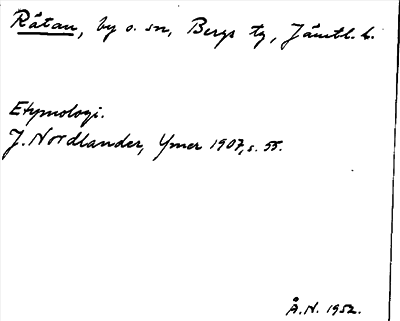 Råtan, by o. sn, Bergs tg, Jämtl. l.
Etymologi.
J. Nordlander, Ymer 1907, s. 55.
Å.N. 1952.